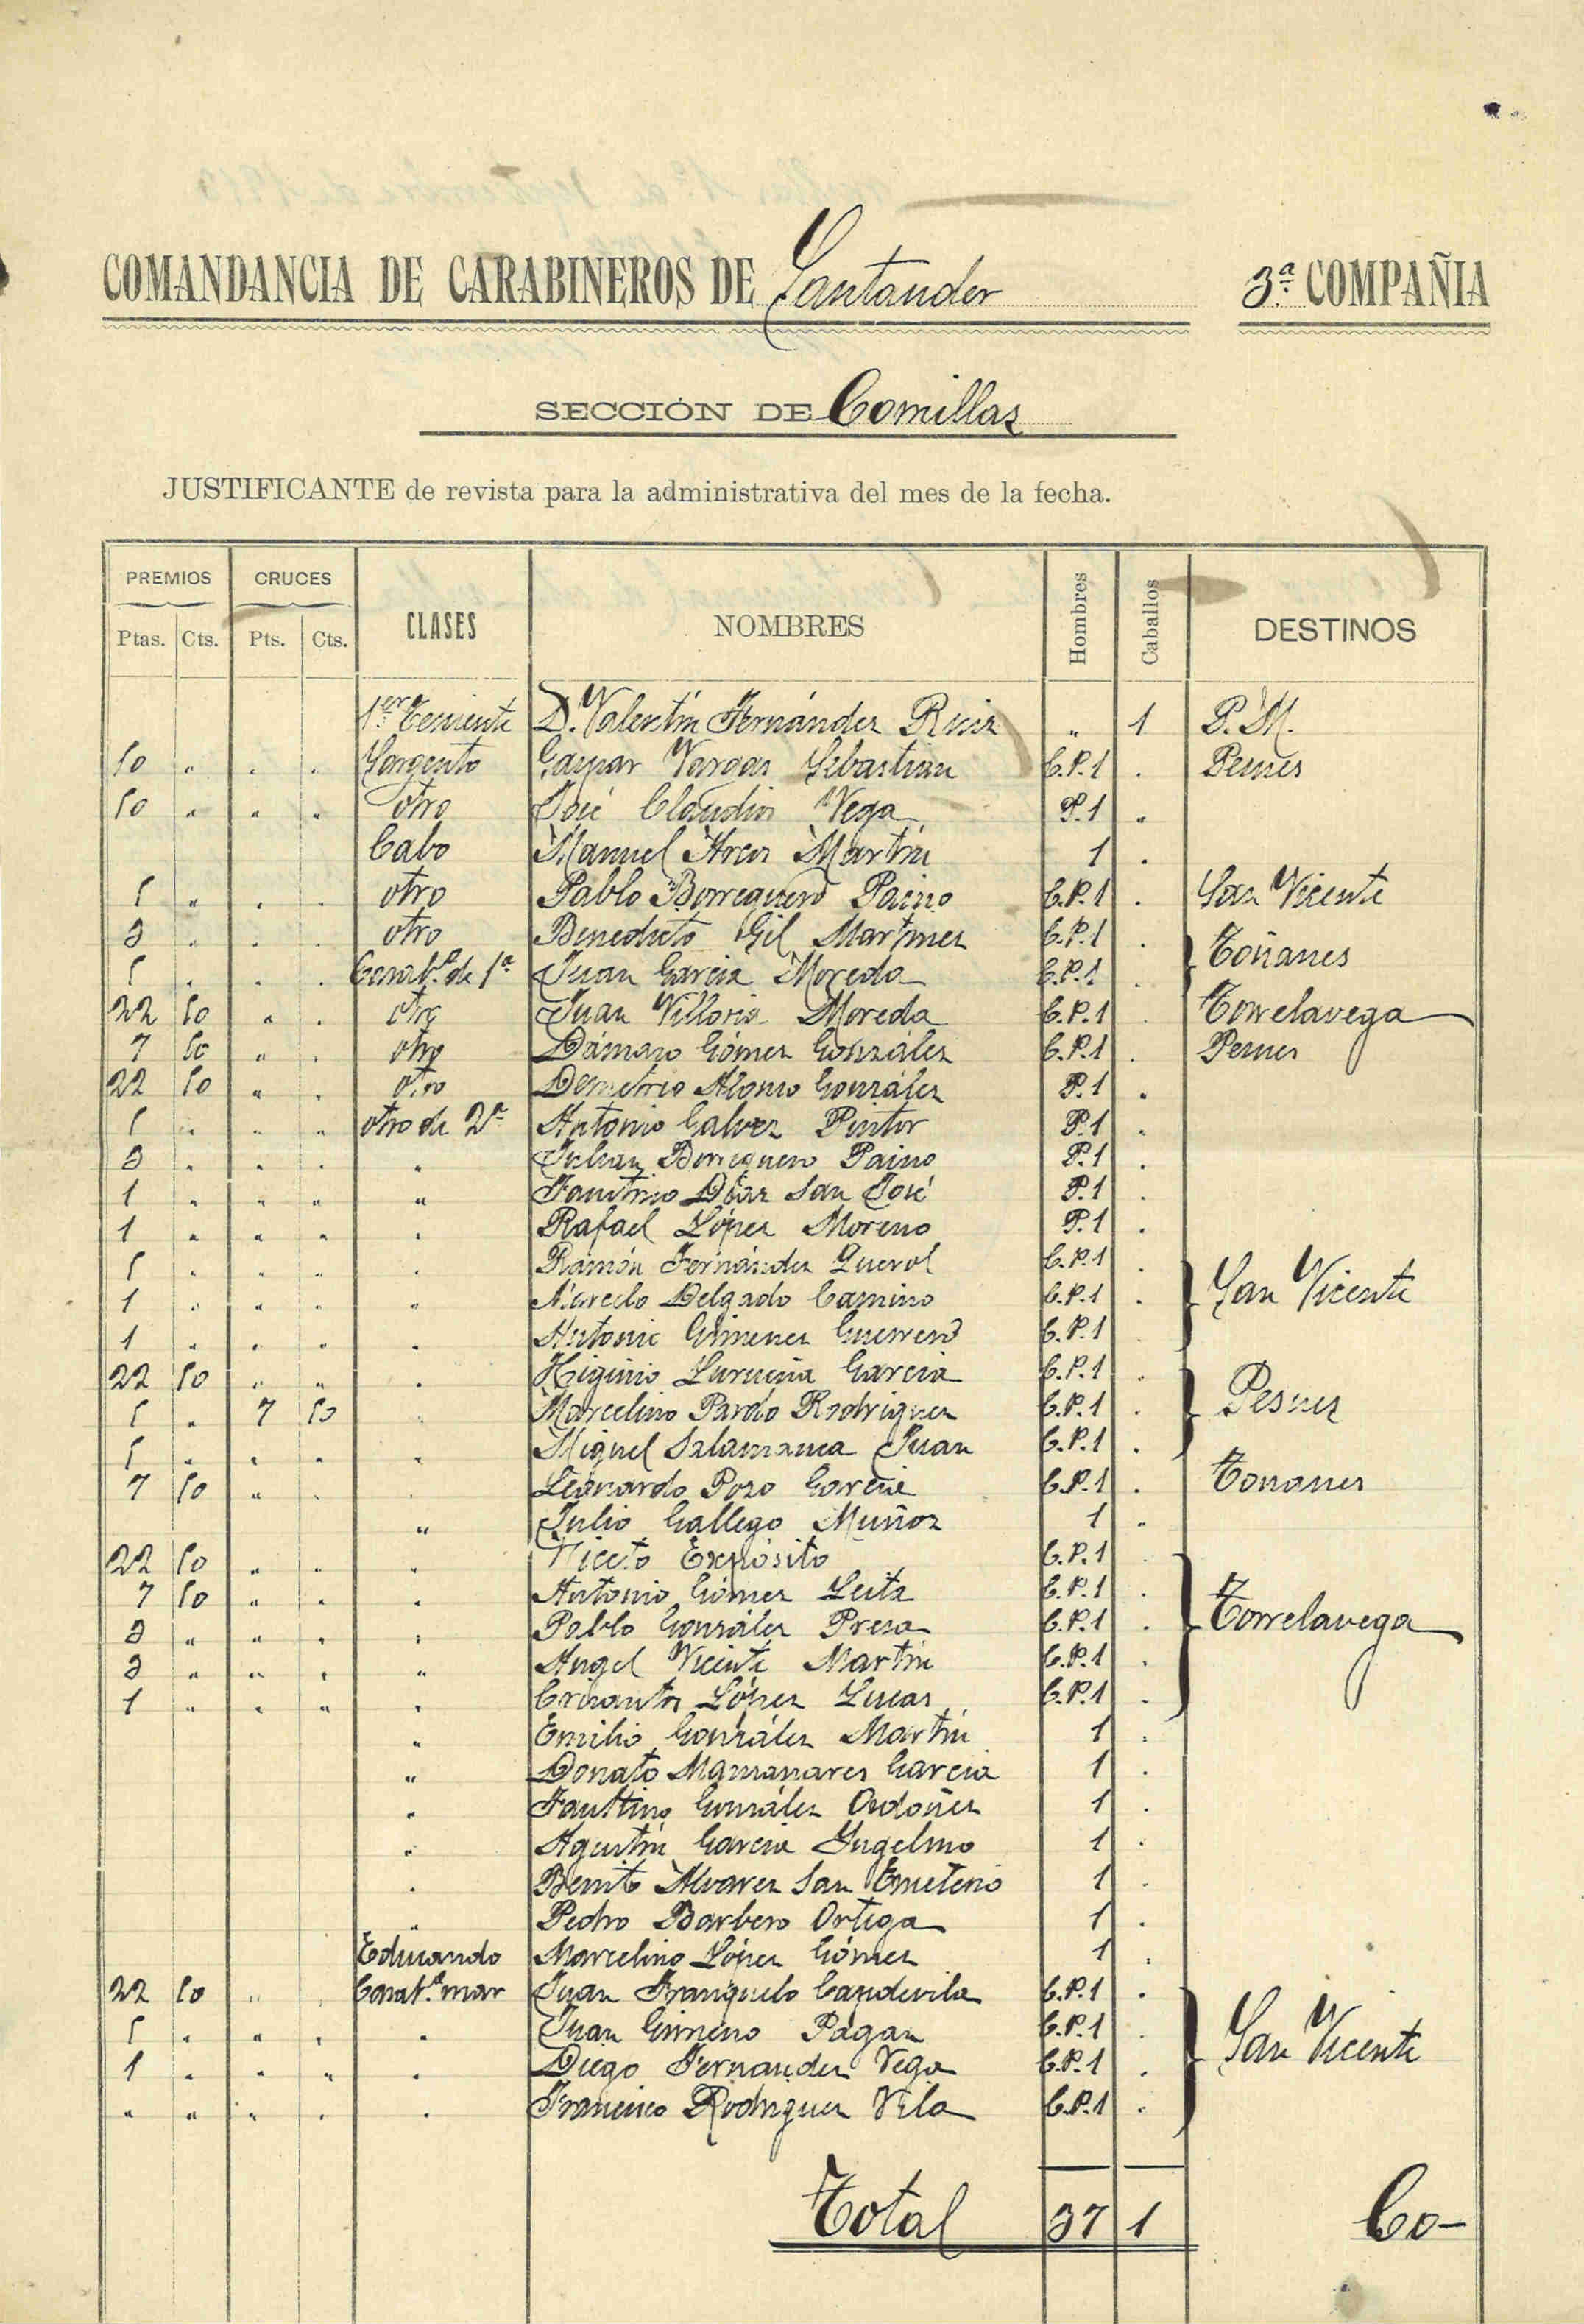 COMANDANCIA DE CARABINEROS DE Santander 3.ª COMPAÑIA
SECCIÓN DE Comillas
JUSTIFICANTE de revista para la administrativa del mes de la fecha.
PREMIOS CRUCES CLASES NOMBRES Hombres Caballos DESTINOS
Ptas. Cts. Pts. Cts.
1.er Teniente D. Valentín Fernández Ruiz " 1 P. M.
50 " " " Sargento Gaspar Vargas Sebastian C.P.1 " Pesues
50 " " " otro José Claudio Vega P.1 "
Cabo Manuel Arcos Martín 1 "
5 " " " otro Pablo Borreguero Paino C.P.1 " San Vicente
3 " " " otro Benedicto Gil Martinez C.P.1 "
5 " " " Carab.º de 1ª Juan Garcia Moreda C.P.1 " Toñanes
22 50 " " otro Juan Villoria Moreda C.P.1 " Torrelavega
7 50 " " otro Dámaso Gómez González C.P.1 " Pesues
22 50 " " otro Demetrio Alonso González P.1 "
5 " " " otro de 2ª Antonio Galvez Pintor P.1 "
3 " " " " Julian Borreguero Paino P.1 "
1 " " " " Faustino Díaz San José P.1 "
1 " " " " Rafael López Moreno P.1 "
5 " " " " Ramón Fernández Querol C.P.1 "
1 " " " " Marcelo Delgado Camino C.P.1 " San Vicente
1 " " " " Antonio Gimenez Guerrero C.P.1 "
22 50 " " " Higinio Lurueña Garcia C.P.1 "
5 " 7 50 " Marcelino Pardo Rodriguez C.P.1 " Pesues
5 " " " " Miguel Salamanca Juan C.P.1 "
7 50 " " " Leonardo Pozo Garcia C.P.1 " Toñanes
" Julio Gallego Muñoz 1 "
22 50 " " " Niceto Expósito C.P.1 "
7 50 " " " Antonio Gómez Leita C.P.1 "
3 " " " " Pablo González Presa C.P.1 " Torrelavega
3 " " " " Angel Vicente Martín C.P.1 "
1 " " " " Crisantos López Lucas C.P.1 "
" Emilio González Martín 1 "
" Donato Manzanares Garcia 1 "
" Faustino González Ordoñez 1 "
" Agustín Garcia Ingelmo 1 "
" Benito Alvarez San Emeterio 1 "
" Pedro Barbero Ortega 1 "
Educando Marcelino López Gómez 1 "
22 50 " " Carab.º mar Juan Franquelo Capdevila C.P.1 "
5 " " " " Juan Gimeno Pagan C.P.1 "
1 " " " " Diego Fernandez Vega C.P.1 " San Vicente
" " " " " Francisco Rodriguez Vila C.P.1 "
Total 37 1 Co-